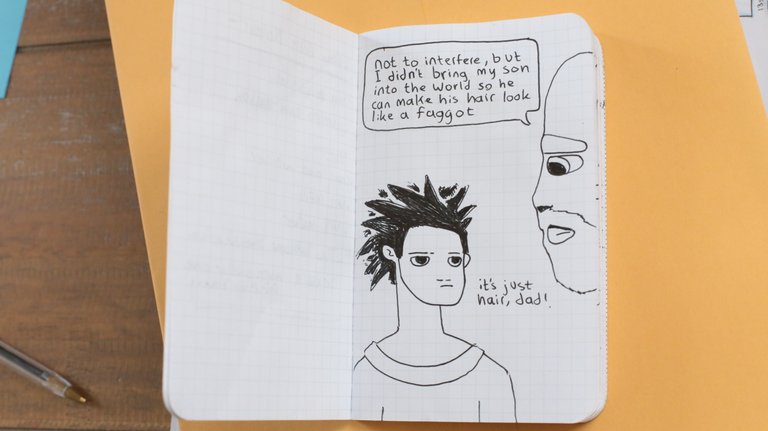 not to interfere, but
I didn't bring my son
into the world so he
can make his hair look
like a faggot
it's just
hair, dad!